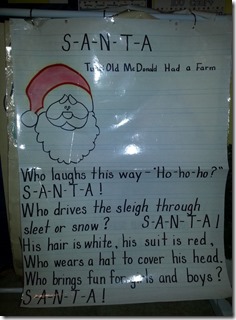 S-A-N-T-A
Tune Old McDonald Had a Farm
Who laughs this way - "Ho-ho-ho?"
S-A-N-T-A!
Who drives the sleigh through
sleet or snow? S-A-N-T-A!
His hair is white, his suit is red,
Who wears a hat to cover his head.
Who brings fun for girls and boys?
S-A-N-T-A!